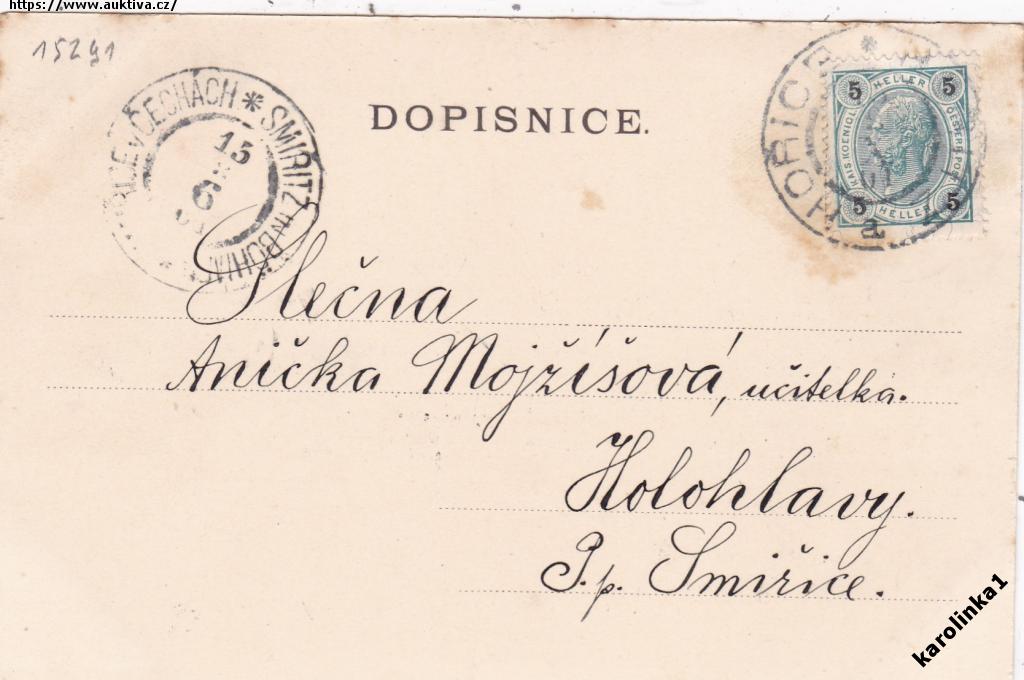 https://www.auktiva.cz/
15291
DOPISNICE.
ČECHÁCH * SMIŘITZ IN BÖHMEN
15
6
HOŘICE *
a
5 HELLER 5
KAIS. KOENIGL. OESTERR. POST
5 HELLER 5
Slečna
Anička Mojžíšová, učitelka.
Holohlavy.
P. p. Smiřice.
karolinka1